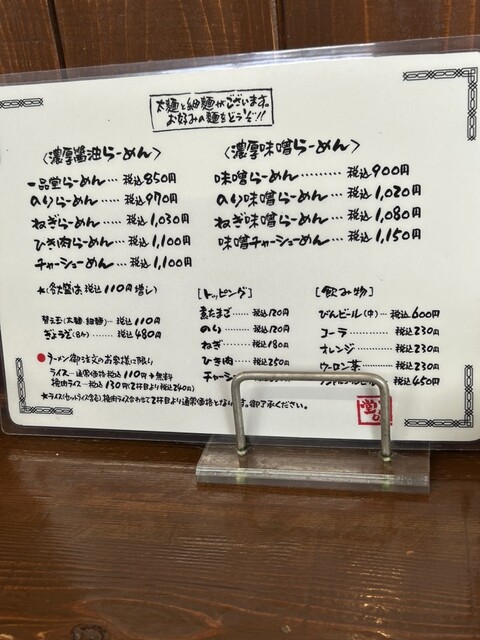 太麺と細麺がございます。
お好みの麺をどうぞ!!
〈濃厚醤油らーめん〉
一品堂らーめん… 税込850円
のりらーめん…… 税込970円
ねぎらーめん…… 税込1,030円
ひき肉らーめん… 税込1,100円
チャーシューめん… 税込1,100円
★(各大盛は税込110円増し)
替え玉(太麺・細麺)… 税込110円
ぎょうざ(6ヶ)…… 税込480円
●ラーメン御注文のお客様に限り
ライス…通常価格税込110円→無料
挽肉ライス…税込130円(2杯目より税込240円)
★ライス(セットライス含む)、挽肉ライス合わせて2杯目より通常価格となります。御了承ください。
〈濃厚味噌らーめん〉
味噌らーめん……… 税込900円
のり味噌らーめん… 税込1,020円
ねぎ味噌らーめん… 税込1,080円
味噌チャーシューめん… 税込1,150円
[トッピング]
煮たまご…… 税込120円
のり……… 税込120円
ねぎ……… 税込180円
ひき肉…… 税込250円
チャーシ
[飲み物]
びんビール(中)… 税込600円
コーラ……… 税込230円
オレンジ…… 税込230円
ウーロン茶… 税込230円
税込450円